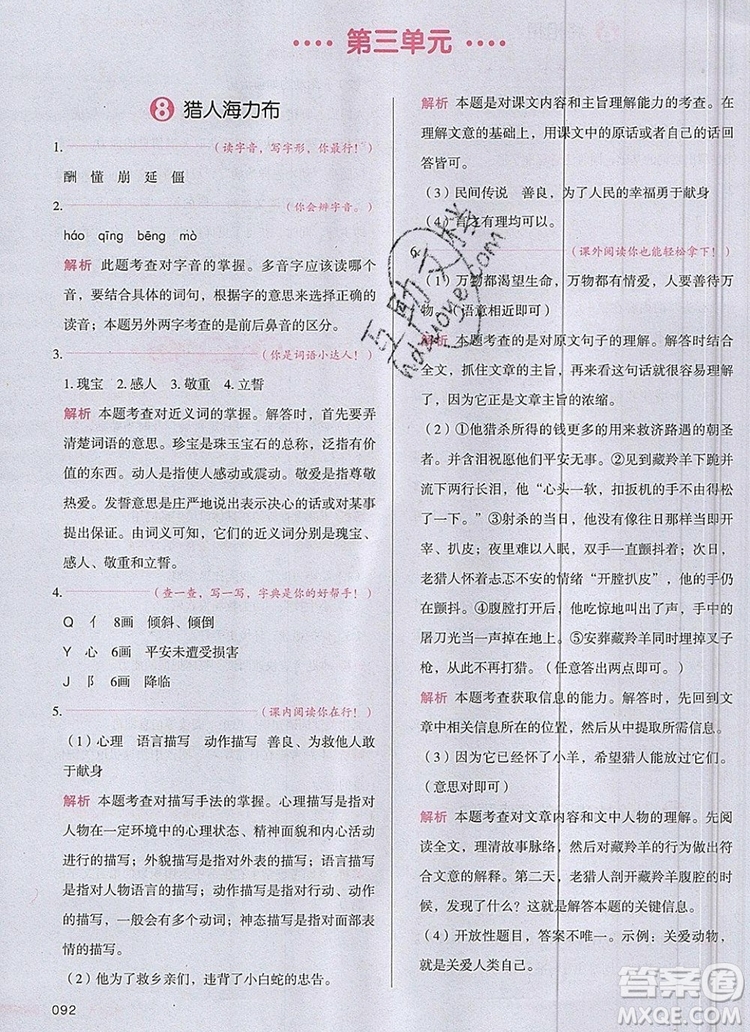 ···· 第三单元 ····
8 猎人海力布
1. (读字音，写字形，你最行！)
酬 懂 崩 延 僵
2. (你会辨字音。)
háo qīng bēng mò
解析 此题考查对字音的掌握。多音字应该读哪个
音，要根据具体的词句，根据字的意思来选择它的
读音；本题另外两字考查的是前后鼻音的区分。
3. (你是词语小达人！)
1. 瑰宝 2. 感人 3. 敬重 4. 立誓
解析 本题考查对近义词的掌握。解答时，首先要弄
清楚词语的意思。珍宝是珠玉宝石的总称，泛指有价
值的东西。动人是指感动或震动。敬爱是指尊敬
热爱。发誓意思是庄严地说出表示决心的话或对某事
提出保证。由词义可知，它们的近义词分别是瑰宝、
感人、敬重和立誓。
4. (查一查，写一写，字典是你的好帮手！)
Q 亻 8画 倾斜、倾倒
Y 心 6画 平安未遭受损害
J 阝 6画 降临
5. (课内阅读你在行！)
（1）心理 语言描写 动作描写 善良、为他人敢
于献身
解析 本题考查对描写手法的掌握。心理描写是指对
人物在一定环境中的心理状态、精神面貌和内心活动
进行的描写；外貌描写是指对外表的描写；语言描写
是指对人物语言进行的描写；动作描写是指对动作的
描写，一般会有许多动词；神态描写是指对面部表
情的描写。
（2）他为了救乡亲们，违背了小白蛇的忠告。
092
解析 本题是对课文内容和主旨理解能力的考查。在
理解文意的基础上，用课文中的原话或者自己的话回
答皆可。
（3）民间传说 善良，为了人民的幸福勇于献身
（4）言之有理均可以。
6. (课外阅读你也能轻松拿下！)
（1）万物都渴望生命，万物都有情爱，万物都有灵
物。（语意相近即可）
解析 本题考查的是对原文句子的理解。解答时结合
全文，抓住文章的主旨，这个题目就很容易理解
了，题目正是文章主旨的浓缩。
（2）①他猎杀所得的钱更多的用来救济路遇的朝圣
者。并混浊祝愿他们平安安。②见到藏羚羊下跪并
流下两行长泪，他“心头一软，扣扳机的手不由得
一松”。③射杀的当天，他没有像往日那样当即开
宰、扒皮；夜里难以入眠，双手一直颤抖。次日，
老猎人怀着忐忑不安的情绪“开膛扒皮”，他的手仍
在颤抖。④腹膛打开，他吃惊地叫出了声，手中的
屠刀咣当一声掉在地上。⑤安葬藏羚羊同时埋掉了叉子
枪，从此不再打猎。（任意答出三点即可）
解析 本题考查获取信息的能力。解答时，首先找到
文章中相关信息所在的位置，然后进行概括。
（3）因为它已经怀了小羊，希望猎人能放过它们。
（意思对即可）
解析 本题考查对文章内容和文中人物的理解。先阅
读全文，理清故事脉络，然后对藏羚羊的行为做出符
合文意的解释。第二天，老猎人剖开藏羚羊腹腔的时
候，发现了什么？这就是解答本题的关键信息。
（4）开放性题目，答案不唯一。示例：关爱动物，
就是关爱人类自己。
互助文学
hdzuone.com
答案圈
MXQE.COM